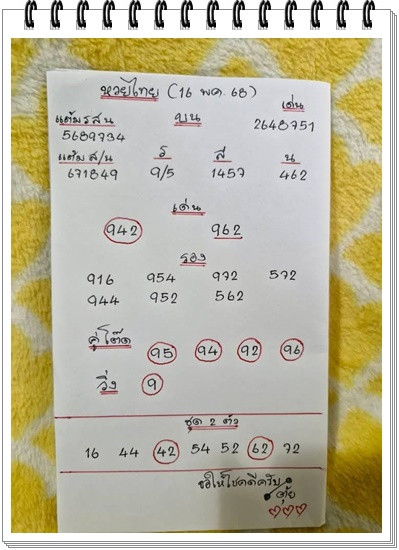 หวยไทย (16 พค. 68)
แต้ม ร ส น บน เด่น
5689734 2648751
แต้ม ส/น ร สี น
671849 9/5 1457 462
เด่น
942 962
รอง
916 954 972 572
944 952 562
คู่โต๊ด 95 94 92 96
วิ่ง 9
ชุด 2 ตัว
16 44 42 54 52 62 72
ขอให้โชคดีครับ
ตุ้ย